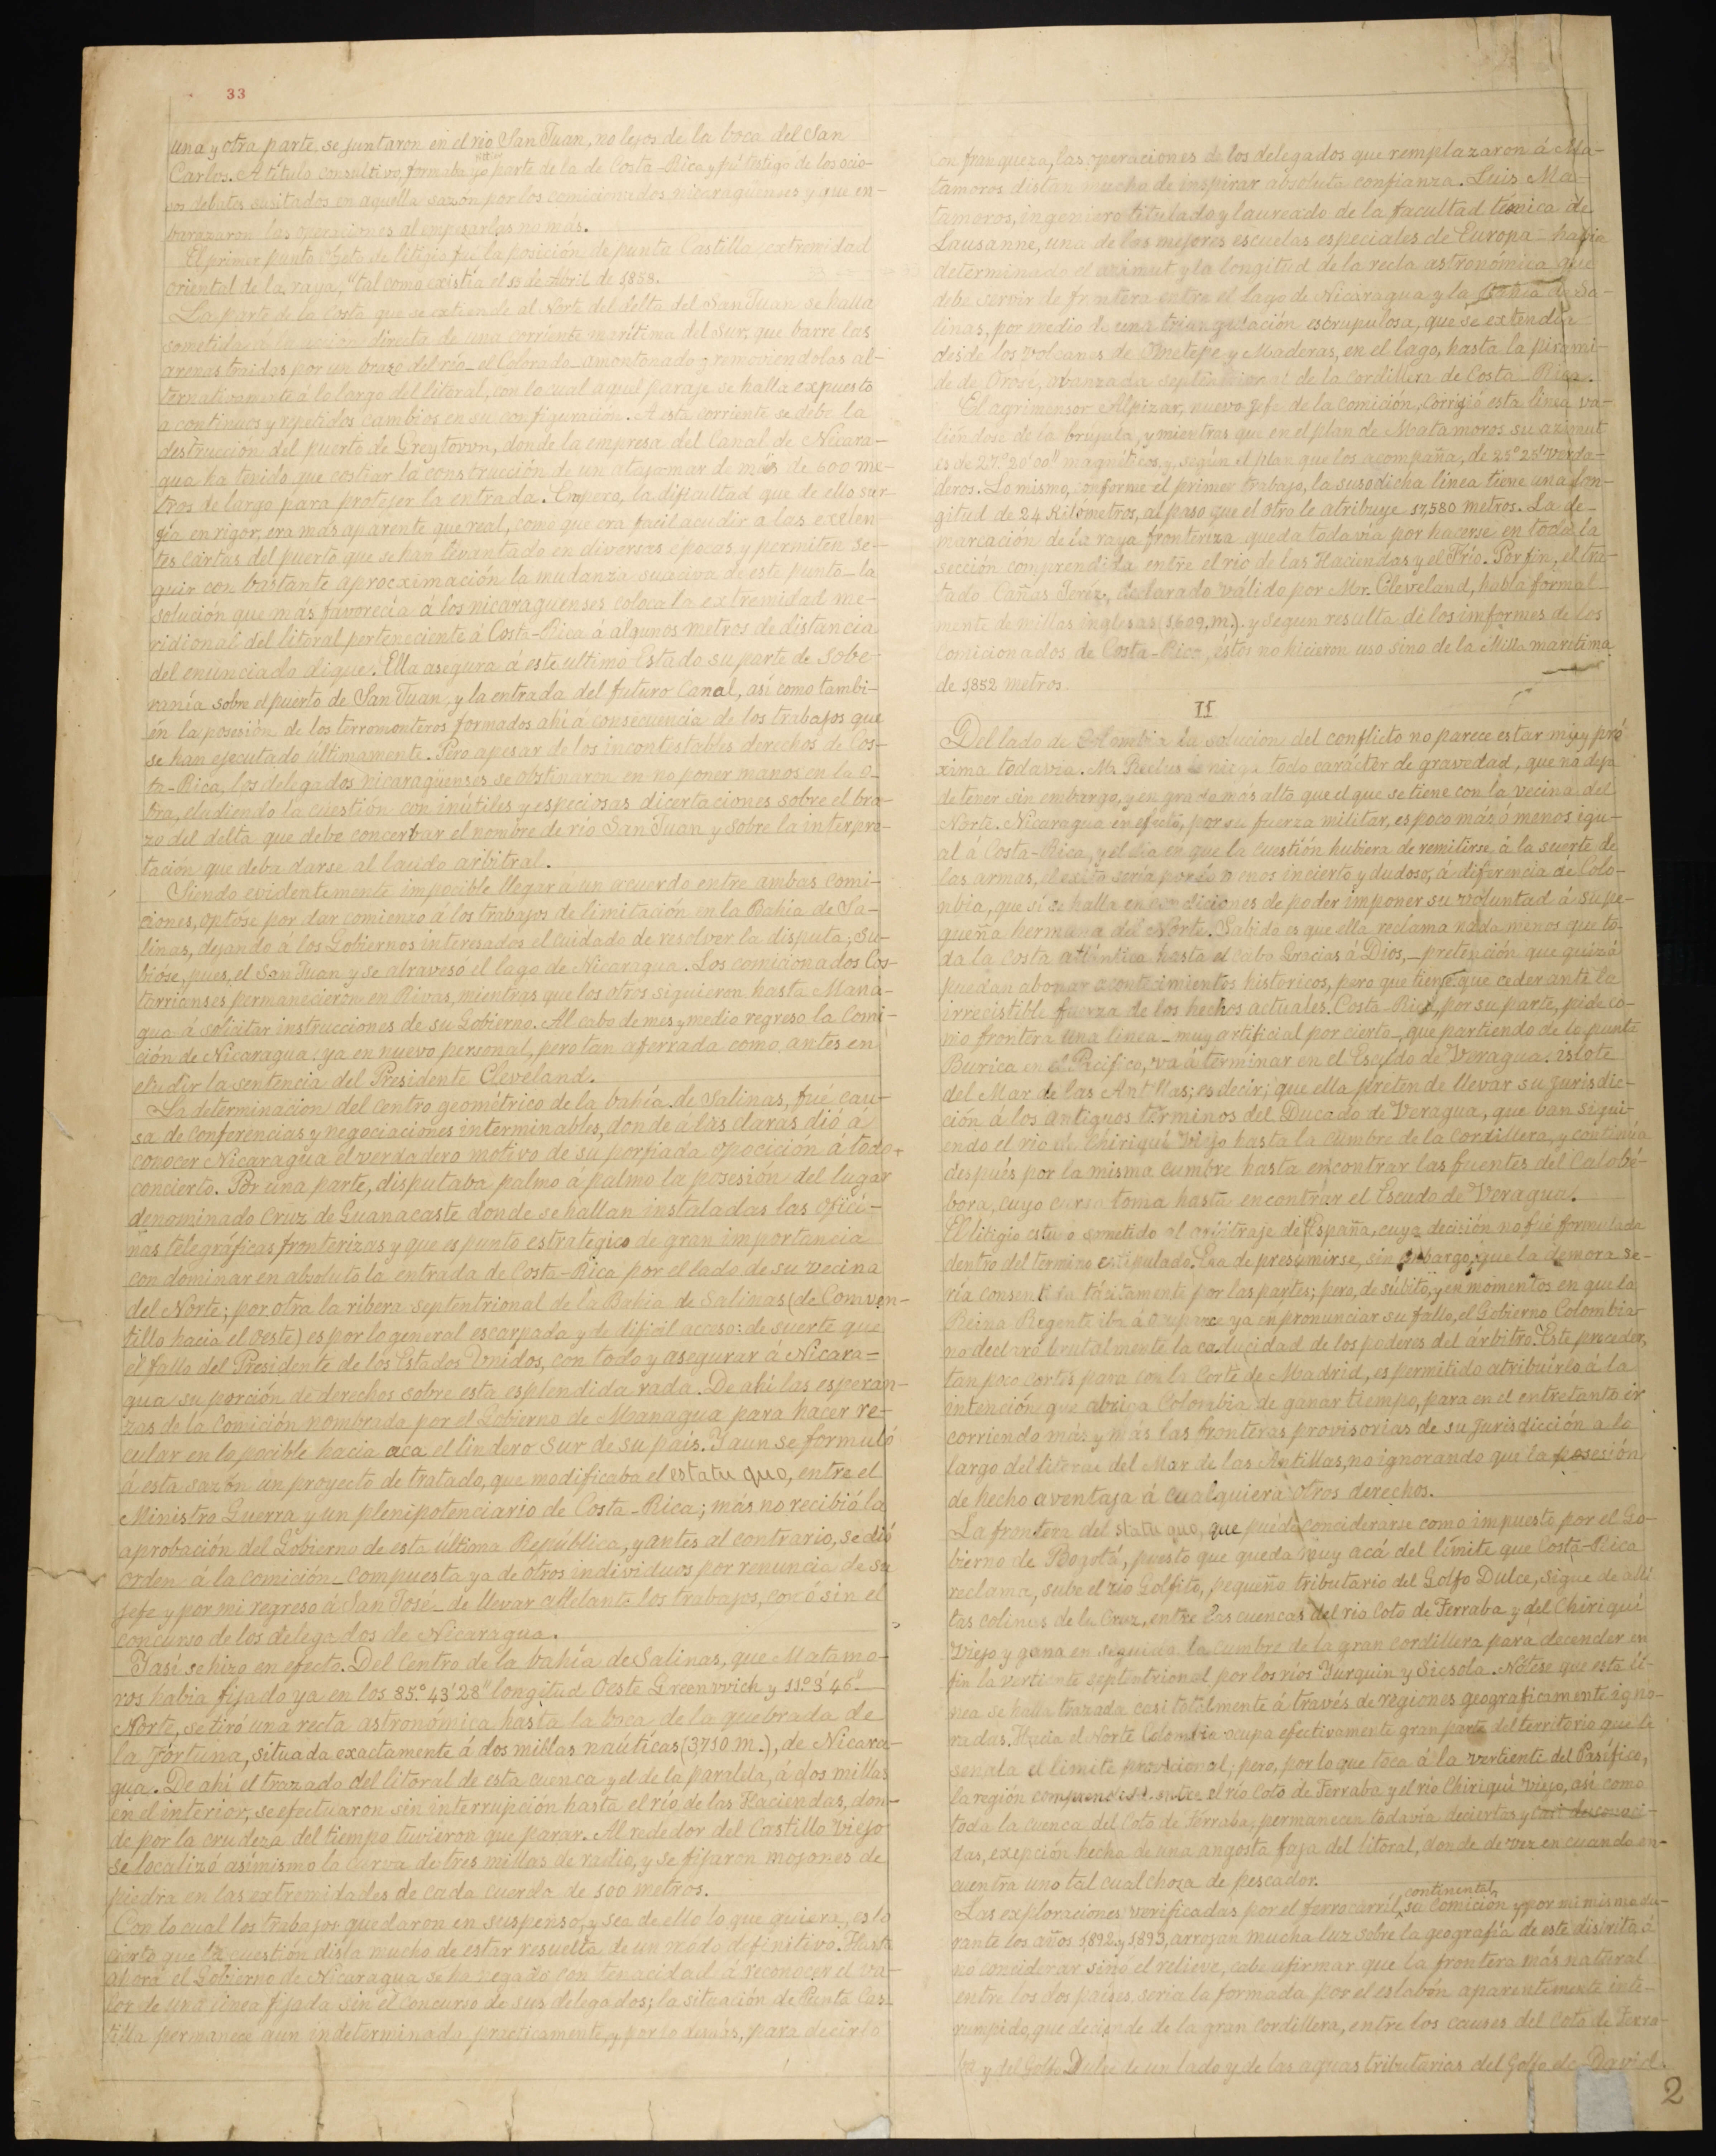 33
una y otra parte, se juntaron en el rio San Juan, no lejos de la boca del San
Carlos. A título consultivo, formaba yo parte de la de Costa-Rica y fuí testigo de los ocio-
sos debates sucitados en aquella sazon por los comicionados nicaragüenses y que en-
barazaron las operaciones al empesarlas no más.
El primer punto objeto de litijio fué la posición de punta Castilla, extremidad
oriental de la raya, "tal como existía el 15 de Abril de 1858.
La parte de la Costa que se extiende al Norte del delta del San Juan se halla
sometida á la acción directa de una corriente marítima del Sur, que barre las
arenas traidas por un brazo del río_el Colorado_amontonado y removiendolas al-
ternativamente á lo largo del litoral, con lo cual aquel paraje se halla expuesto
a continuos y repetidos cambios en su configuración. A esta corriente se debe la
destrucción del puerto de Greytovvn, donde la empresa del Canal de Nicara-
gua ha tenido que costear la construcción de un atajamar de más de 600 me-
tros de largo para protejer la entrada. Empero, la dificultad que de ello sur-
gía en rigor, era más aparente que real, como que era facil acudir a las exelen-
tes cartas del puerto que se han levantado en diversas epocas y permiten se-
guir con bastante aprocximación la mudanza suaciva de este punto_la
solución que más favorecía á los nicaraguenses coloca la extremidad me-
ridional del litoral perteneciente á Costa-Rica á algunos metros de distancia
del enunciado dique. Ella asegura á este ultimo Estado su parte de sobe-
ranía sobre el puerto de San Juan y la entrada del futuro Canal, así como tambi-
én la posesión de los terromonteros formados ahí á consecuencia de los trabajos que
se han ejecutado últimamente. Pero apesar de los incontestables derechos de Cos-
ta-Rica, los delegados nicaragüenses se obstinaron en no poner manos en la o-
bra, eludiendo la cuestión con inútiles y especiosas dicertaciones sobre el bra-
zo del delta que debe concervar el nombre de río San Juan y sobre la interpre-
tación que deba darse al laudo arbitral.
Siendo evidentemente impocible llegar á un acuerdo entre ambas comi-
ciones, optóse por dar comienzo á los trabajos de limitación en la Bahía de Sa-
linas, dejando á los Gobiernos interesados el cuidado de resolver la disputa; Su-
bióse, pues, el San Juan y se atravesó el lago de Nicaragua. Los comicionados Cos-
tarrianses permanecieron en Rivas, mientras que los otros siguieron hasta Mana-
gua á solicitar instrucciones de su Gobierno. Al cabo de mes y medio regreso la Comi-
ción de Nicaragua, ya en nuevo personal, pero tan aferrada como antes en
eludir la sentencia del Presidente Cleveland.
La determinacion del centro geométrico de la bahía de Salinas, fué cau-
sa de conferencias y negociaciones interminables, donde á las claras dió á
conocer Nicaragua el verdadero motivo de su porfiada opocición á todo
concierto. Por una parte, disputaba palmo á palmo la posesión del lugar
denominado Cruz de Guanacaste donde se hallan instaladas las ofici-
nas telegráficas fronterizas y que es punto estrategico de gran importancia
con dominar en absoluto la entrada de Costa-Rica por el lado de su vecina
del Norte; por otra la ribera septentrional de la Bahia de Salinas (de Comven-
tillo hacia el Oeste) es por lo general escarpada y de dificil acceso: de suerte que
el fallo del Presidente de los Estados Unidos, con todo y asegurar á Nicara-
gua su porción de derechos sobre esta esplendida rada. De ahí las esperan-
zas de la Comición nombrada por el Gobierno de Managua para hacer re-
cular en lo pocible hacia aca el lindero Sur de su país. Y aun se formuló
á esta sazón un proyecto de tratado, que modificaba el estatu quo, entre el
Ministro Guerra y un plenipotenciario de Costa-Rica; más no recibió la
aprobación del Gobierno de esta última República, y antes al contrario, se dió
orden á la comición_compuesta ya de otros individuos por renuncia de su
jefe y por mi regreso á San José_de llevar adelante los trabajos, con ó sin el
concurso de los delegados de Nicaragua.
Y así se hizo en efecto. Del Centro de la bahía de Salinas, que Matamo-
ros habia fijado ya en los 85.º 43' 28" longitud Oeste Greenvvich y 11º 3' 46"
Norte, se tiró una recta astronómica hasta la boca de la quebrada de
la Fortuna, situada exactamente á dos millas naúticas (3,710 m.), de Nicara-
gua. De ahí el trazado del litoral de esta cuenca y el de la paralela, á dos millas
en el interior, se efectuaron sin interrupción hasta el río de las Haciendas, don-
de por la crudeza del tiempo tuvieron que parar. Al rededor del Castillo Viejo
se localizó asimismo la curva de tres millas de radio, y se fijaron mojones de
piedra en las extremidades de cada cuerda de 100 metros.
Con lo cual los trabajos quedaron en suspenso, y sea de ello lo que quiera, es lo
cierto que la cuestión dista mucho de estar resuelta de un modo definitivo. Hasta
ahora el Gobierno de Nicaragua se ha negado con tenacidad á reconocer el va-
lor de una linea fijada sin el concurso de sus delegados; la situación de Punta Cas-
tilla permanece aun indeterminada practicamente, y por lo demás, para decirlo
con franqueza, las operaciones de los delegados que remplazaron á Ma-
tamoros distan mucho de inspirar absoluta confianza. Luis Ma-
tamoros, ingeniero titulado y laureado de la facultad tecnica de
Lausanne, una de las mejores escuelas especiales de Europa_había
determinado el azimut y la longitud de la recta astronómica que
debe servir de frontera entre el lago de Nicaragua y la bahía de Sa-
linas, por medio de una triangulación escrupulosa, que se extendía
desde los volcanes de Ometepe y Maderas, en el lago, hasta la pirami-
de de Orosí, abanzada septentrional de la cordillera de Costa-Rica.
El agrimensor Alpizar, nuevo jefe de la comición, corrigió esta linea va-
liéndose de la brujula, y mientras que en el plan de Matamoros su azimut
es de 27.º 20' 00" magnéticos y, según el plan que los acompaña, de 25º 25' verda-
deros. Lo mismo, conforme el primer trabajo, la susodicha linea tiene una lon-
gitud de 24 Kilometros, al paso que el otro le atribuye 17,580 metros. La de-
marcación de la raya fronteriza queda toda vía por hacerse en toda la
sección comprendida entre el rio de las Haciendas y el Frío. Por fin, el tra-
tado Cañas Jeréz, declarado válido por Mr. Cleveland, habla formal-
mente de millas inglesas (1,609, m.). y segun resulta de los imformes de los
comicionados de Costa-Rica, éstos no hicieron uso sino de la Milla marítima
de 1,852 metros.
II
Del lado de Colombia la solucion del conflicto no parece estar muy pró
xima todavia. Mr. Reclus le niega todo carácter de gravedad, que no deja
de tener sin embargo, y en grado más alto que el que se tiene con la vecina del
Norte. Nicaragua en efecto, por su fuerza militar, es poco más ó menos igu-
al á Costa-Rica, y el dia en que la cuestión hubiera de remitirse á la suerte de
las armas, el exito sería por lo menos incierto y dudoso, á diferencia de Colo-
mbia, que sí se halla en condiciones de poder imponer su voluntad á su pe-
queña hermana del Norte. Sabido es que ella reclama nada menos que to-
da la costa atlántica hasta el cabo Gracias á Dios,_pretención que quizá
puedan abonar acontecimientos historicos, pero que tiene que ceder ante la
irrecistible fuerza de los hechos actuales. Costa-Rica, por su parte, pide co-
mo frontera una linea_muy artificial por cierto_que partiendo de la punta
Burica en el Pacifico, va á terminar en el Escudo de Veragua, islote
del Mar de las Antillas; es decir, que ella pretende llevar su jurisdic-
ción á los antiguos términos del Ducado de Veragua, que van sigui-
endo el río de Chiriquí Viejo hasta la cumbre de la cordillera, y continúa
después por la misma cumbre hasta encontrar las fuentes del Calobé-
bora, cuyo curso toma hasta encontrar el Escudo de Veragua.
El litigio estuvo sometido al arbitraje de España, cuya decisión no fué formulada
dentro del termino estipulado. Era de presumirse, sin embargo, que la demora se-
ría consentida tácitamente por las partes; pero, de súbito, y en momentos en que la
Reina Regente iba á ocuparce ya en pronunciar su fallo, el Gobierno Colombia-
no declaró brutalmente la caducidad de los poderes del árbitro. Este proceder,
tan poco cortés para con la Corte de Madrid, es permitido atribuirlo á la
intención que abriga Colombia de ganar tiempo, para en el entretanto ir
corriendo más y más las fronteras provisorias de su jurisdicción a lo
largo del litoral del Mar de las Antillas, no ignorando que la posesión
de hecho aventaja á cualquiera otros derechos.
La frontera del statu quo, que puede conciderarse como impuesta por el Go-
bierno de Bogotá, puesto que queda muy acá del límite que Costa-Rica
reclama, sube el río Golfito, pequeño tributario del Golfo Dulce, sigue de allí
las colinas de la Cruz, entre las cuencas del rio Coto de Terraba y del Chiriquí
Viejo y gana en seguida la cumbre de la gran cordillera para decender en
fin la vertiente septentrional por los ríos Yurquin y Sicsola. Nótese que esta lí-
nea se halla trazada casi totalmente á través de regiones geograficamente igno-
radas. Hacia el Norte Colombia ocupa efectivamente gran parte del territorio que le
senala el limite provicional; pero, por lo que toca á la vertiente del Pasífico,
la región comprendida entre el río Coto de Terraba y el río Chiriquí Viejo, así como
toda la cuenca del Coto de Terraba, permanecen todavía deciertas y casi desconoci-
das, exepción hecha de una angosta faja del litoral, donde de vez en cuando en-
cuentra uno tal cual choza de pescador.
Las exploraciones verificadas por el ferrocarril continental, su Comición y por mi mismo du-
rante los años 1,892 y 1,893, arrojan mucha luz sobre la geografía de este disirito, á
no conciderar sino el relieve, cabe afirmar que la frontera más natural
entre los dos países, sería la formada por el eslabón aparentemente inte-
rrumpido, que deciende de la gran cordillera, entre los causes del Coto de Terra-
ba y del Golfo Dulce de un lado y de las aguas tributarias del Golfo de David.
2